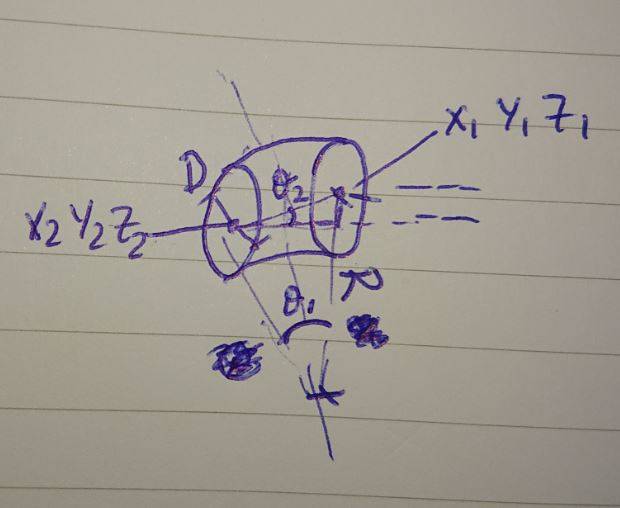 X₁ Y₁ Z₁
D
θ₂
X₂ Y₂ Z₂
θ₁
R